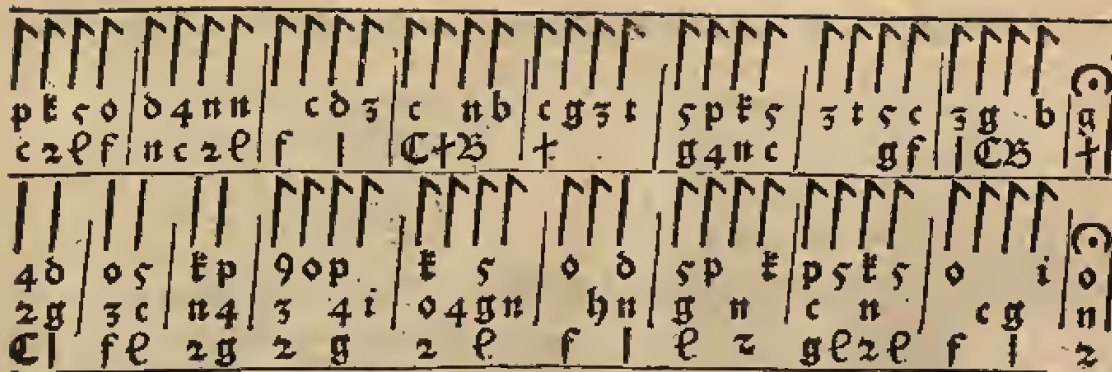 p k 5 o | d 4 n n | c d 3 | c n b | c g 3 t | 5 p k 5 | 3 t 5 c | 3 g b | g
c 2 e f | n c 2 e | f l | C † B | † | g 4 n c | g f | l C B | †
4 d | o 5 | k p | 9 o p | k 5 | o d | 5 p k | p 5 k 5 | o i | o
2 g | 3 c | n 4 | 3 4 i | o 4 g n | h n | g n | c n | c g | n
C l | f e | 2 g | 2 g | 2 e | f l | e 2 | g e 2 e | f l | 2